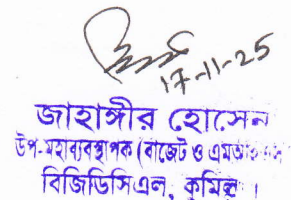 17-11-25
জাহাঙ্গীর হোসেন
উপ-মহাব্যবস্থাপক (বাজেট ও
বিজিডিসিএল, কুমিল্লা।